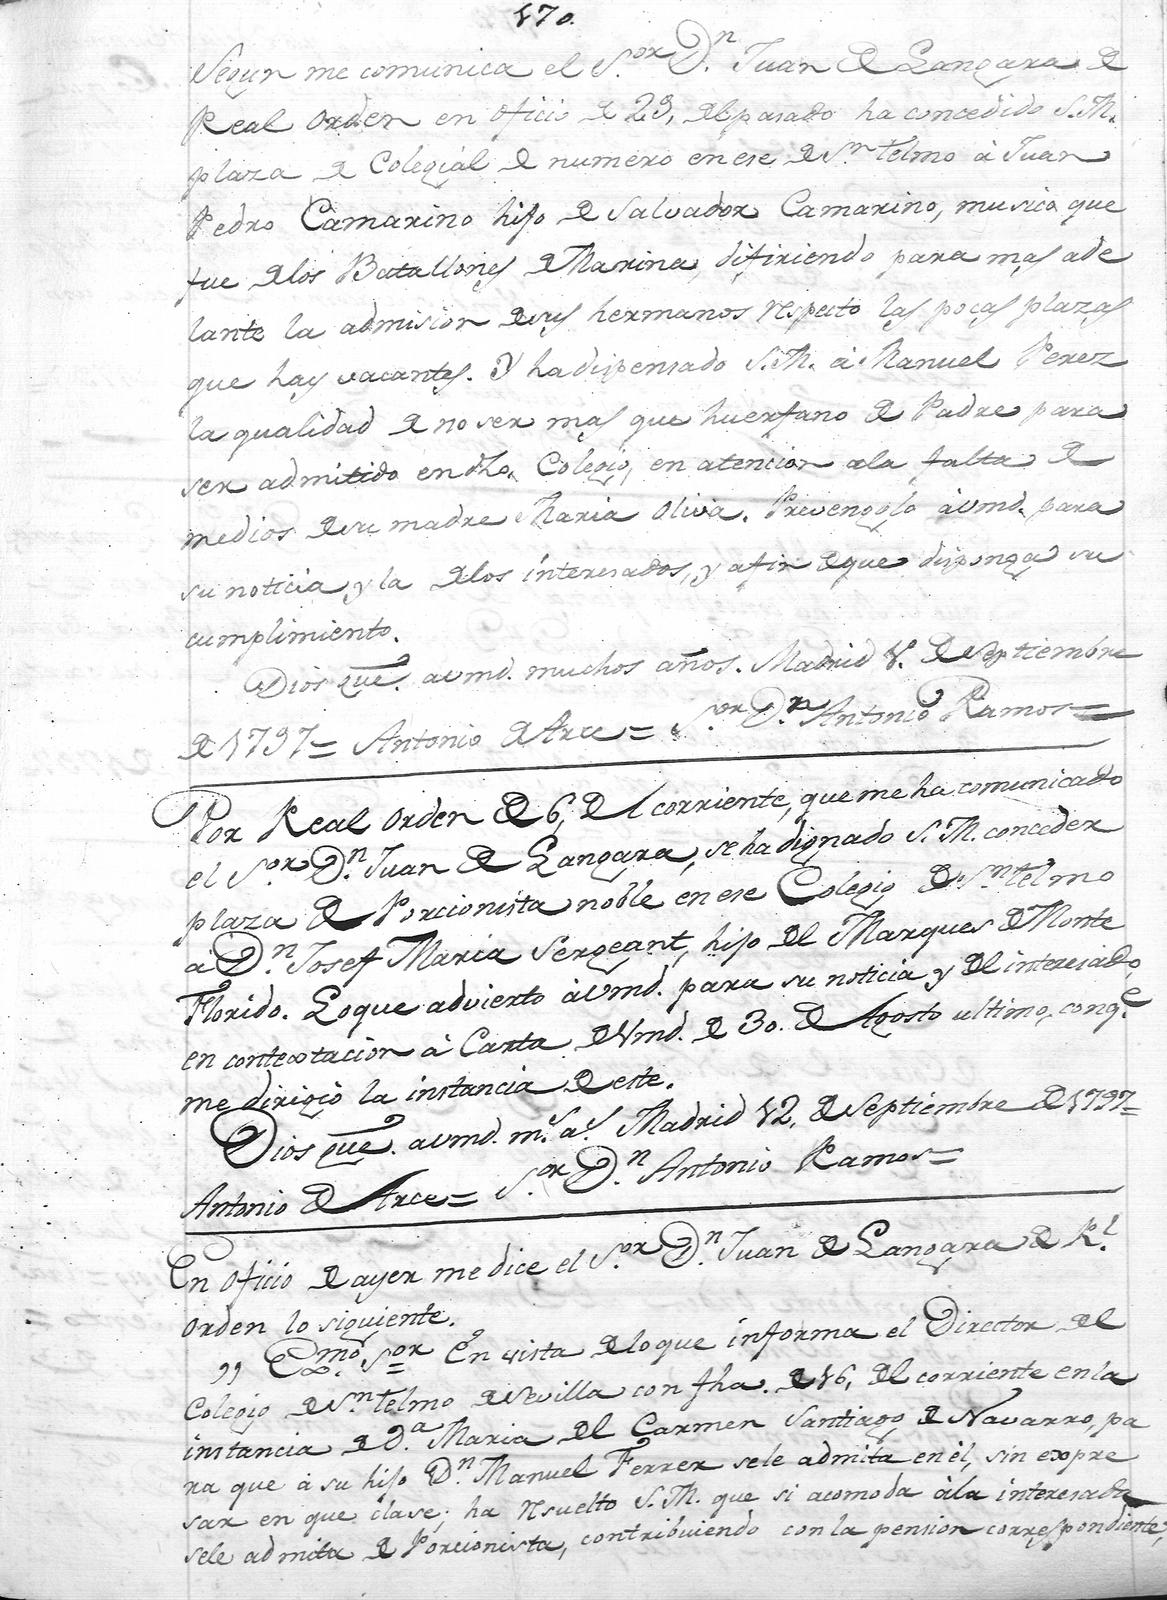 170.
Segun me comunica el S.or D.n Juan de Langara de
Real Orden en oficio de 29, del pasado ha concedido S.M.
plaza de Colegiál de numero en ese de S.n Telmo á Juan
Pedro Camarino hijo de Salvador Camarino, musico que
fue de los Batallones de Marina, difiriendo para mas ade
lante la admision de sus hermanos respecto las pocas plazas
que hay vacantes. Y ha dispensado S.M. á Manuel Perez
la qualidad de no ser mas que huerfano de Padre para
ser admitido en dho. Colegio, en atencion a la falta de
medios de su madre Maria Oliva. Prevengolo á vmd. para
su noticia y la de los interesados, y a fin de que disponga su
cumplimiento.
Dios gue. a vmd. muchos años. Madrid 1. de Septiembre
de 1797= Antonio de Arce= S.or D.n Antonio Ramos=
Por Real orden de 6, del corriente, que me ha comunicado
el S.or D.n Juan de Langara, se ha dignado S.M. conceder
plaza de Porcionista noble en ese Colegio de S.n Telmo
a D.n Josef Maria Sergeant, hijo del Marques de Monte
Florido. Lo que advierto á vmd. para su noticia y del interesado
en contextacion á Carta de Vmd. de 30. de Agosto ultimo, con q.e
me dirigió la instancia de este.
Dios gue. a vmd. m.s a.s Madrid 12, de Septiembre de 1797=
Antonio de Arce= S.or D.n Antonio Ramos=
En oficio de ayer me dice el S.or D.n Juan de Langara de R.l
orden lo siguiente.
„ Exmo. S.or= En vista de lo que informa el Director del
Colegio de S.n Telmo de Sevilla con fha. de 16, del corriente en la
instancia de D.a Maria del Carmen Santiago de Navarro, pa
ra que á su hijo D.n Manuel Ferrer se le admita en él, sin expre
sar en que clase; ha resuelto S.M. que si acomoda á la interesada
se le admita de Porcionista, contribuiendo con la pension correspondiente,